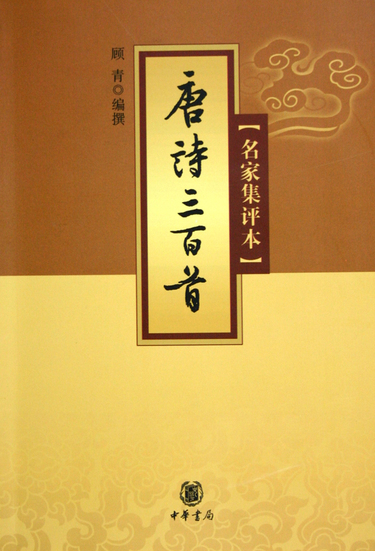 唐詩三百首
【名家集评本】
顾青◎编撰
中華書局